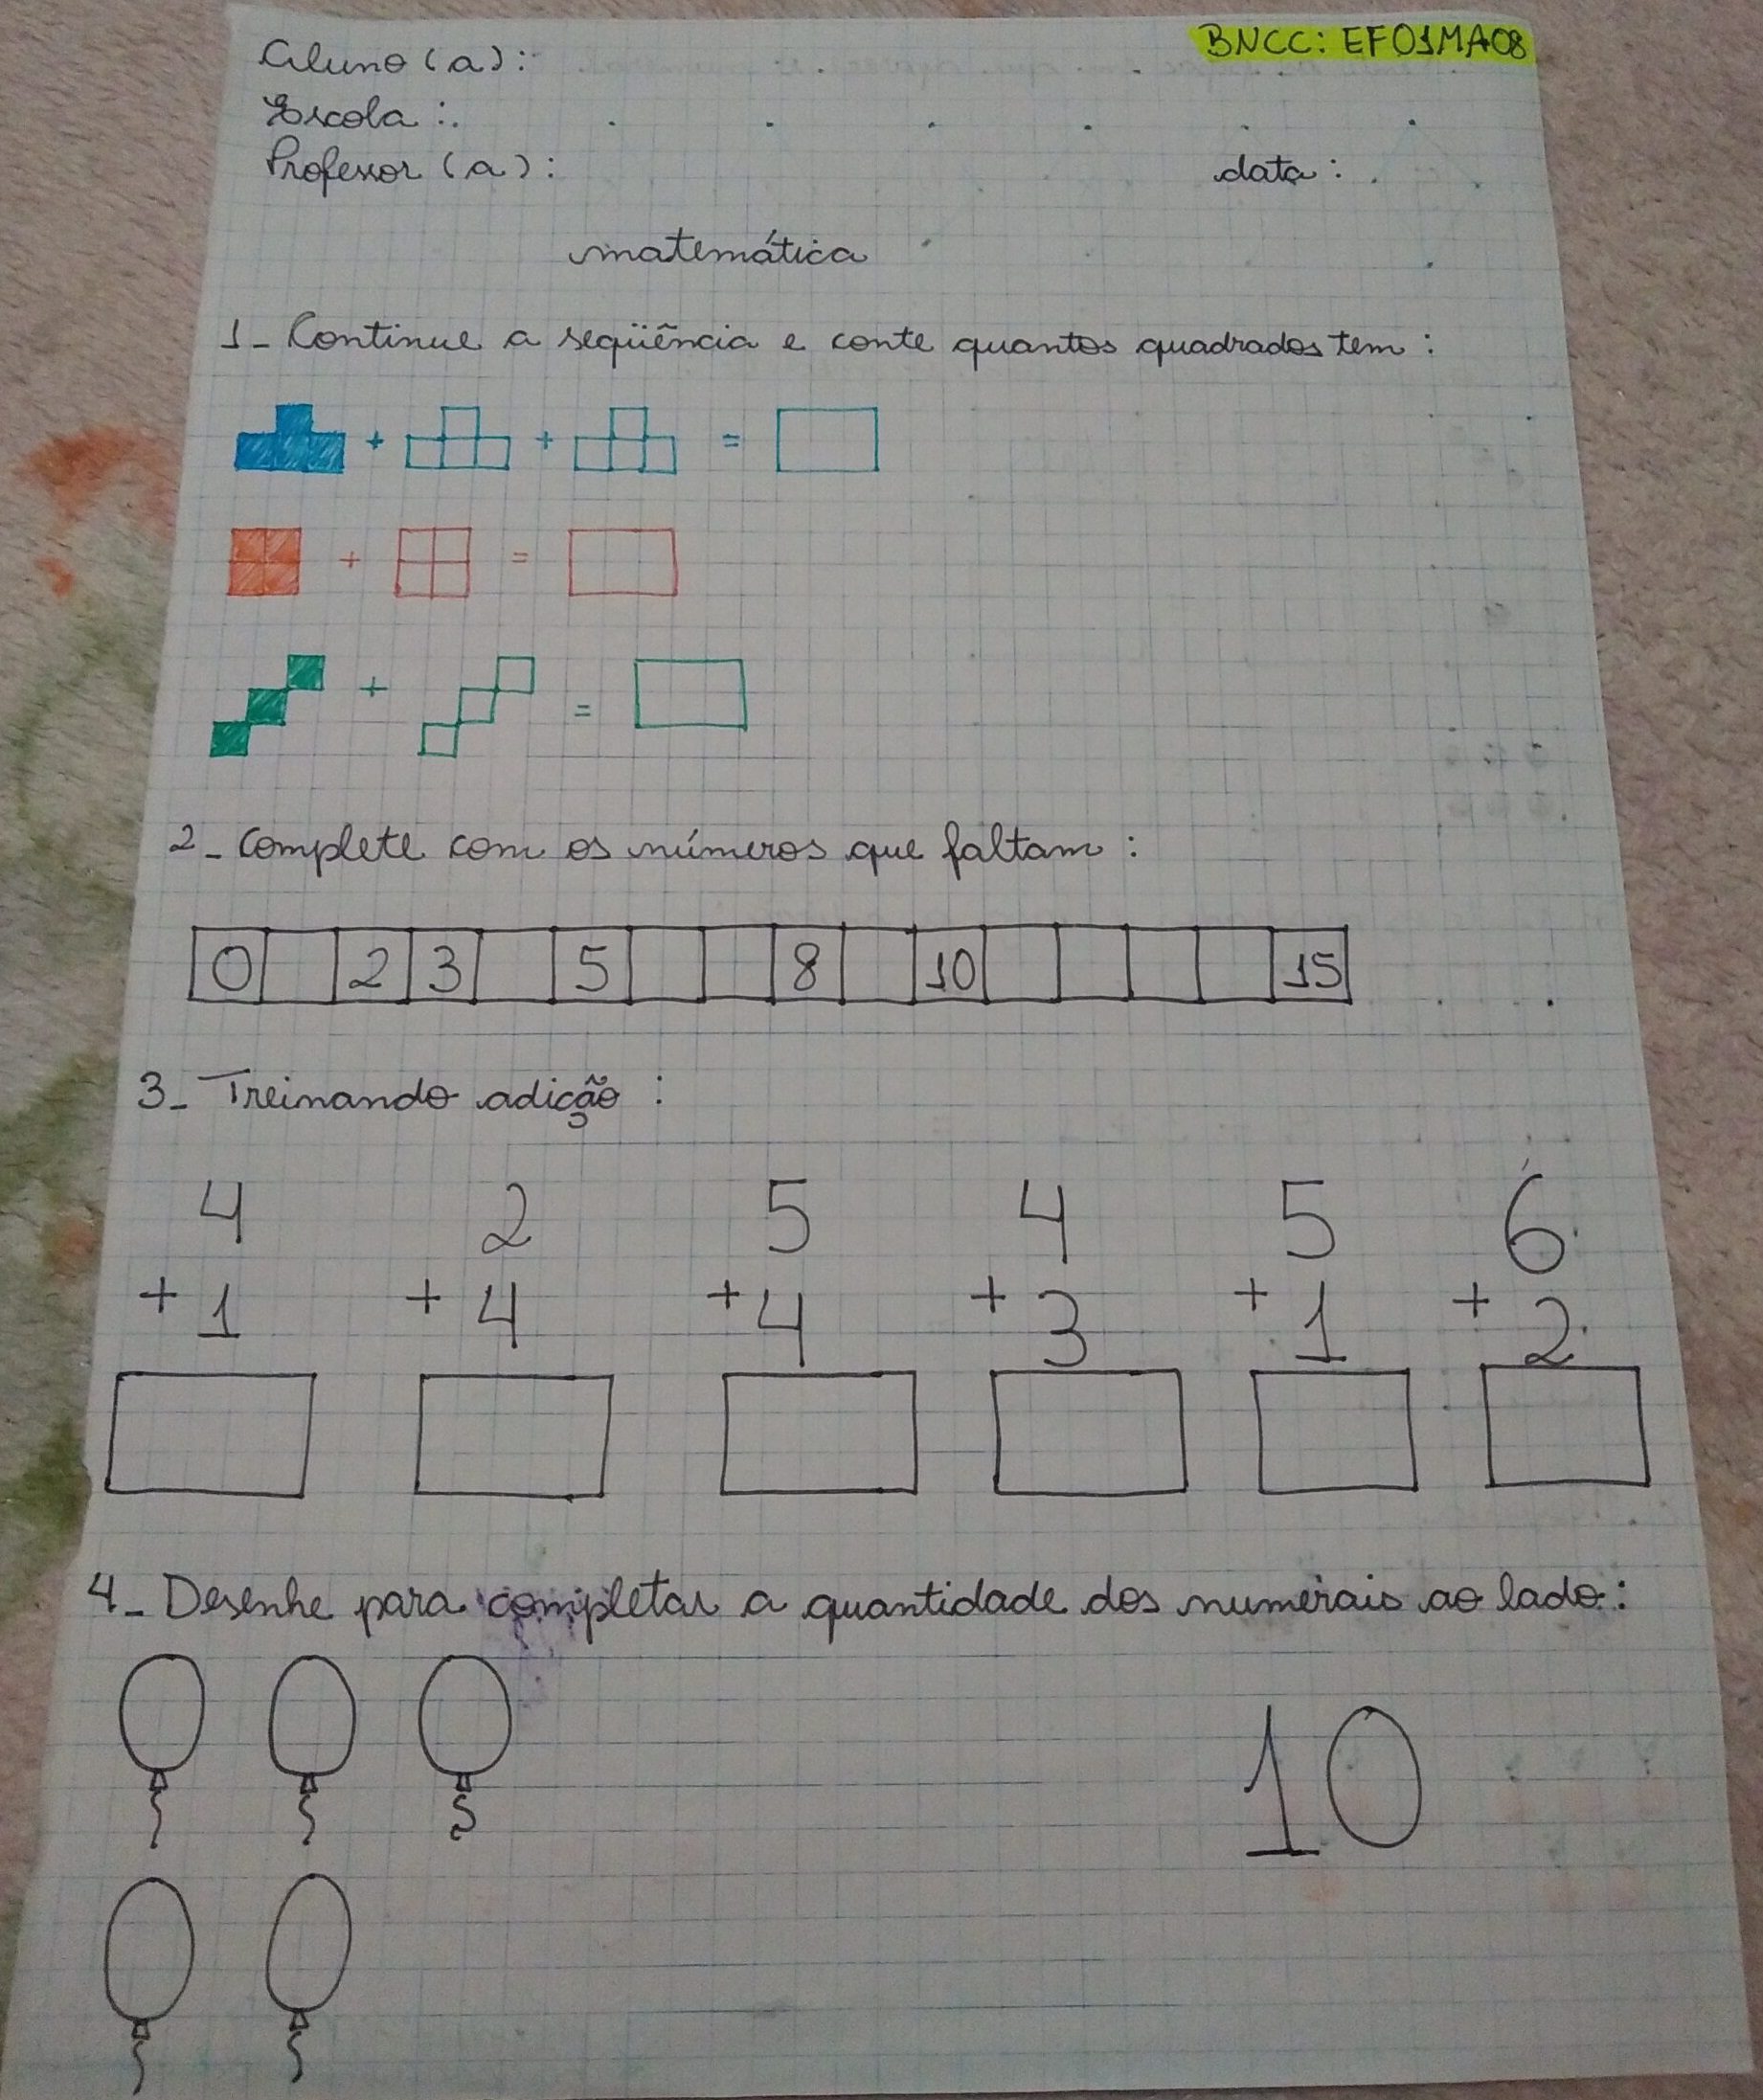 BNCC: EF01MA08
Aluno(a):
Escola:
Professor(a): data:
matemática
1- Continue a seqüência e conte quantos quadrados tem:
+ + =
+ =
+ =
2- Complete com os números que faltam:
0 2 3 5 8 10 15
3- Treinando adição:
4 2 5 4 5 6
+ 1 + 4 + 4 + 3 + 1 + 2
4- Desenhe para completar a quantidade dos numerais ao lado:
10